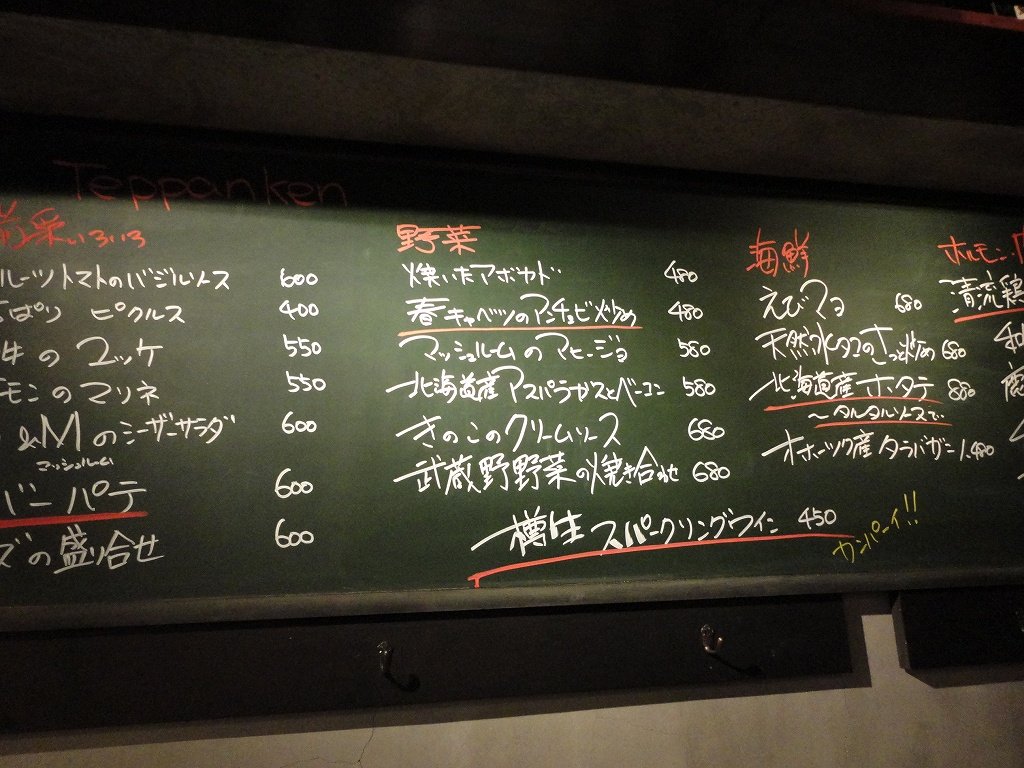 Teppanken
前菜いろいろ
ルーツトマトのバジルソース 600
っぱり ピクルス 400
牛のユッケ 550
モンのマリネ 550
&Mのシーザーサラダ 600
マッシュルーム
バーパテ 600
ズの盛り合せ 600
野菜
焼いたアボカド 480
春キャベツのアンチョビ炒め 480
マッシュルームのアヒージョ 580
北海道産アスパラガスとベーコン 580
きのこのクリームソース 680
武蔵野野菜の焼き合わせ 680
樽生スパークリングワイン 450
カンパーイ!!
海鮮
えびマヨ 680
天然水タコのさっと炒め 680
北海道産ホタテ 880
〜タルタルソースで
オホーツク産タラバガニ 1,480
ホルモン・
清流鶏